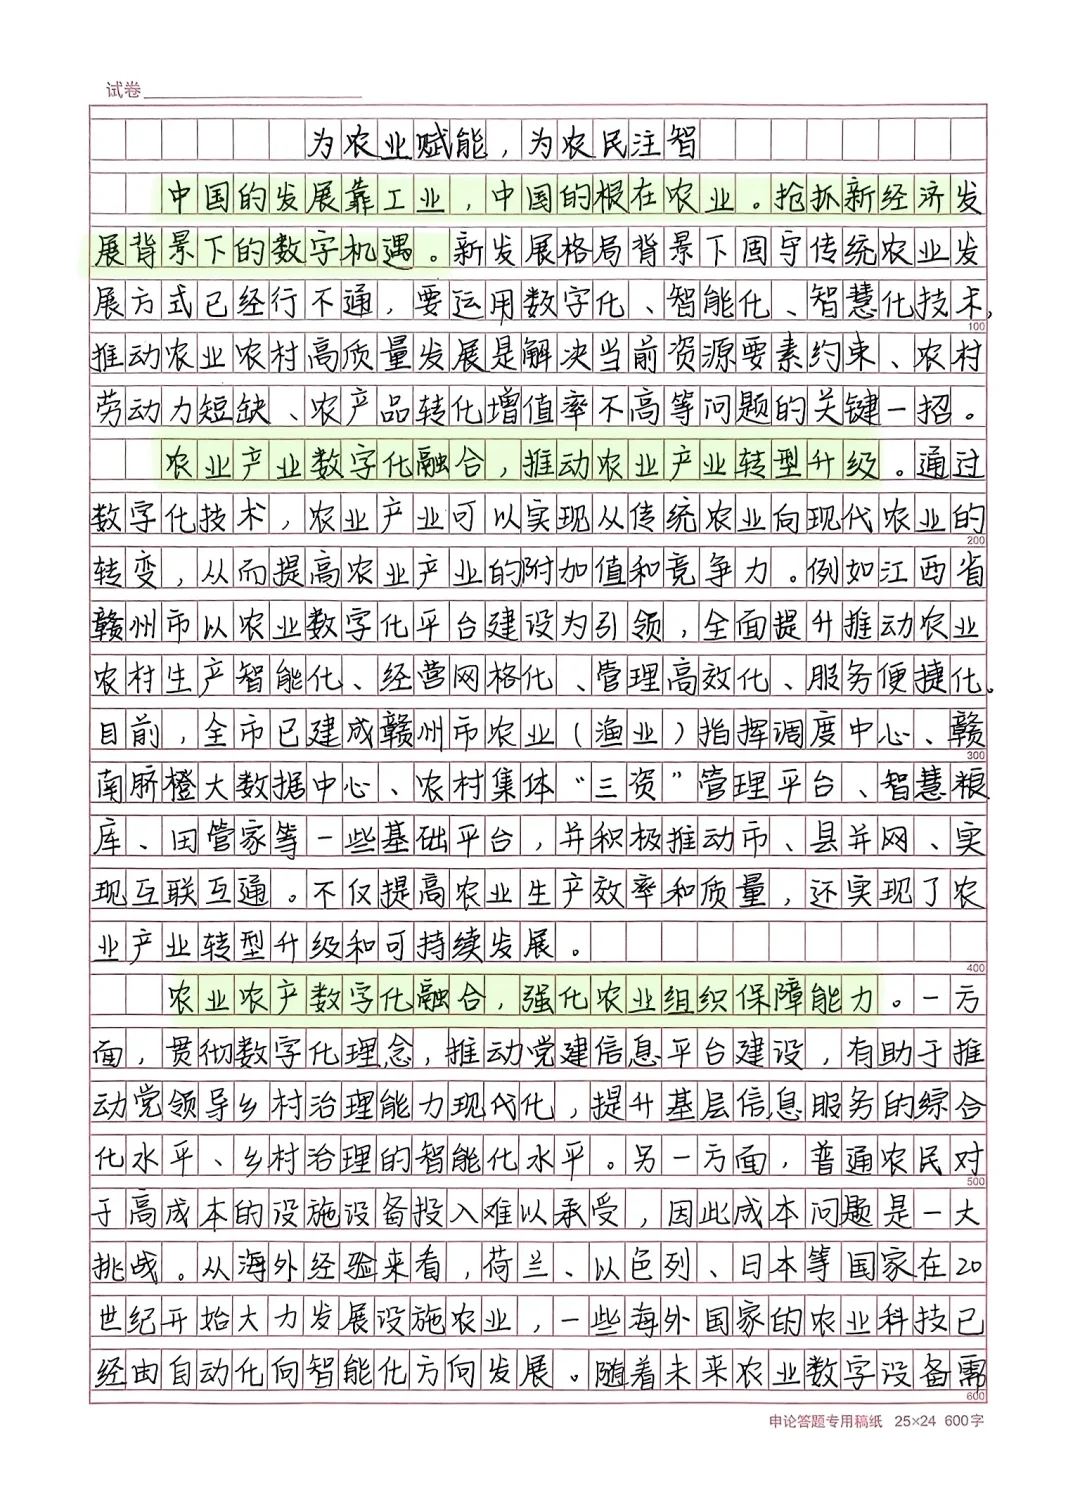 试卷
为农业赋能，为农民注智
中国的发展靠工业，中国的根在农业。抢抓新经济发
展背景下的数字机遇。新发展格局背景下固守传统农业发
展方式已经行不通，要运用数字化、智能化、智慧化技术，
100
推动农业农村高质量发展是解决当前资源要素约束、农村
劳动力短缺、农产品转化增值率不高等问题的关键一招。
农业产业数字化融合，推动农业产业转型升级。通过
数字化技术，农业产业可以实现从传统农业向现代农业的
200
转变，从而提高农业产业的附加值和竞争力。例如江西省
赣州市以农业数字化平台建设为引领，全面提升推动农业
农村生产智能化、经营网格化、管理高效化、服务便捷化。
目前，全市已建成赣州市农业（渔业）指挥调度中心、赣
300
南脐橙大数据中心、农村集体“三资”管理平台、智慧粮
库、田管家等一些基础平台，并积极推动市、县并网、实
现互联互通。不仅提高农业生产效率和质量，还实现了农
业产业转型升级和可持续发展。
400
农业农产数字化融合，强化农业组织保障能力。一方
面，贯彻数字化理念，推动党建信息平台建设，有助于推
动党领导乡村治理能力现代化，提升基层信息服务的综合
化水平、乡村治理的智能化水平。另一方面，普通农民对
500
于高成本的设施设备投入难以承受，因此成本问题是一大
挑战。从海外经验来看，荷兰、以色列、日本等国家在20
世纪开始大力发展设施农业，一些海外国家的农业科技已
经由自动化向智能化方向发展。随着未来农业数字设备需
600
申论答题专用稿纸 25×24 600字